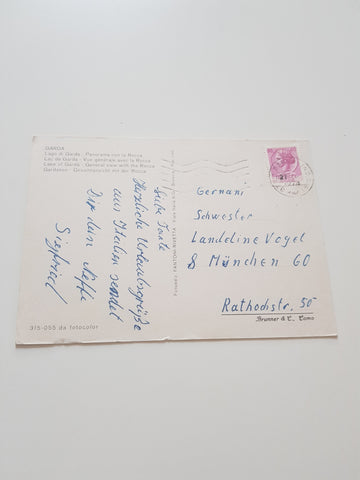 GARDA
Lago di Garda - Panorama con la Rocca
Lac de Garda - Vue générale avec la Rocca
Lake of Garda - General view with the Rocca
Gardasee - Gesamtansicht mit der Rocca
Liebe Tante
Herzliche Urlaubsgrüße
aus Italien sendet
Dir dein Neffe
Siegfried
315-055 da fotocolor
Germani
Schwester
Landeline Vogel
8 München 60
Rathochstr. 50
Brunner & C., Como